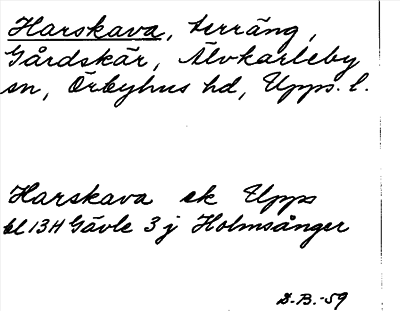 Harskava, terräng,
Gårdskär, Älvkarleby
sn, Örbyhus hd, Upps. l.
Harskava ek Upps
bl 13H Gävle 3 j Holmsånger
D.B.-59